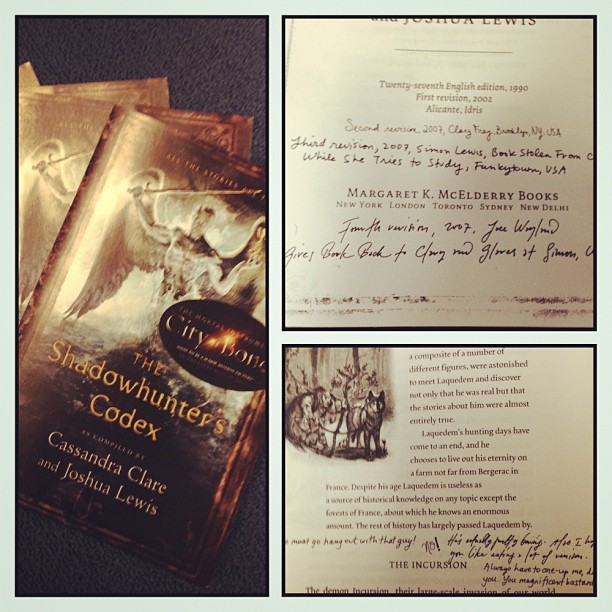 ALL THE STORIES
City of Bone
THE
Shadowhunter's
Codex
AS COMPILED BY
Cassandra Clare
and Joshua Lewis
and JOSHUA LEWIS
Twenty-seventh English edition, 1990
First revision, 2002
Alicante, Idris
Second revision 2007, Clary Fray, Brooklyn, NY, USA
Third revision, 2007, Simon Lewis, Book Stolen From C
While She Tries to Study, Funkytown, USA
MARGARET K. McELDERRY BOOKS
NEW YORK LONDON TORONTO SYDNEY NEW DELHI
Fourth revision, 2007, Jace Wayland
gives Book Back to Clary and Glares at Simon, U
a composite of a number of
different figures, were astonished
to meet Laquedem and discover
not only that he was real but that
the stories about him were almost
entirely true.
Laquedem's hunting days have
come to an end, and he
chooses to live out his eternity on
a farm not far from Bergerac in
France. Despite his age Laquedem is useless as
a source of historical knowledge on any topic except the
forests of France, about which he knows an enormous
amount. The rest of history has largely passed Laquedem by.
e must go hang out with that guy!
NO!
He's actually pretty boring. Also I h
you like eating a lot of venison.
Always have to one-up me,
you. You magnificent bastard
THE INCURSION
The demon Incursion, their large-scale invasion of our world